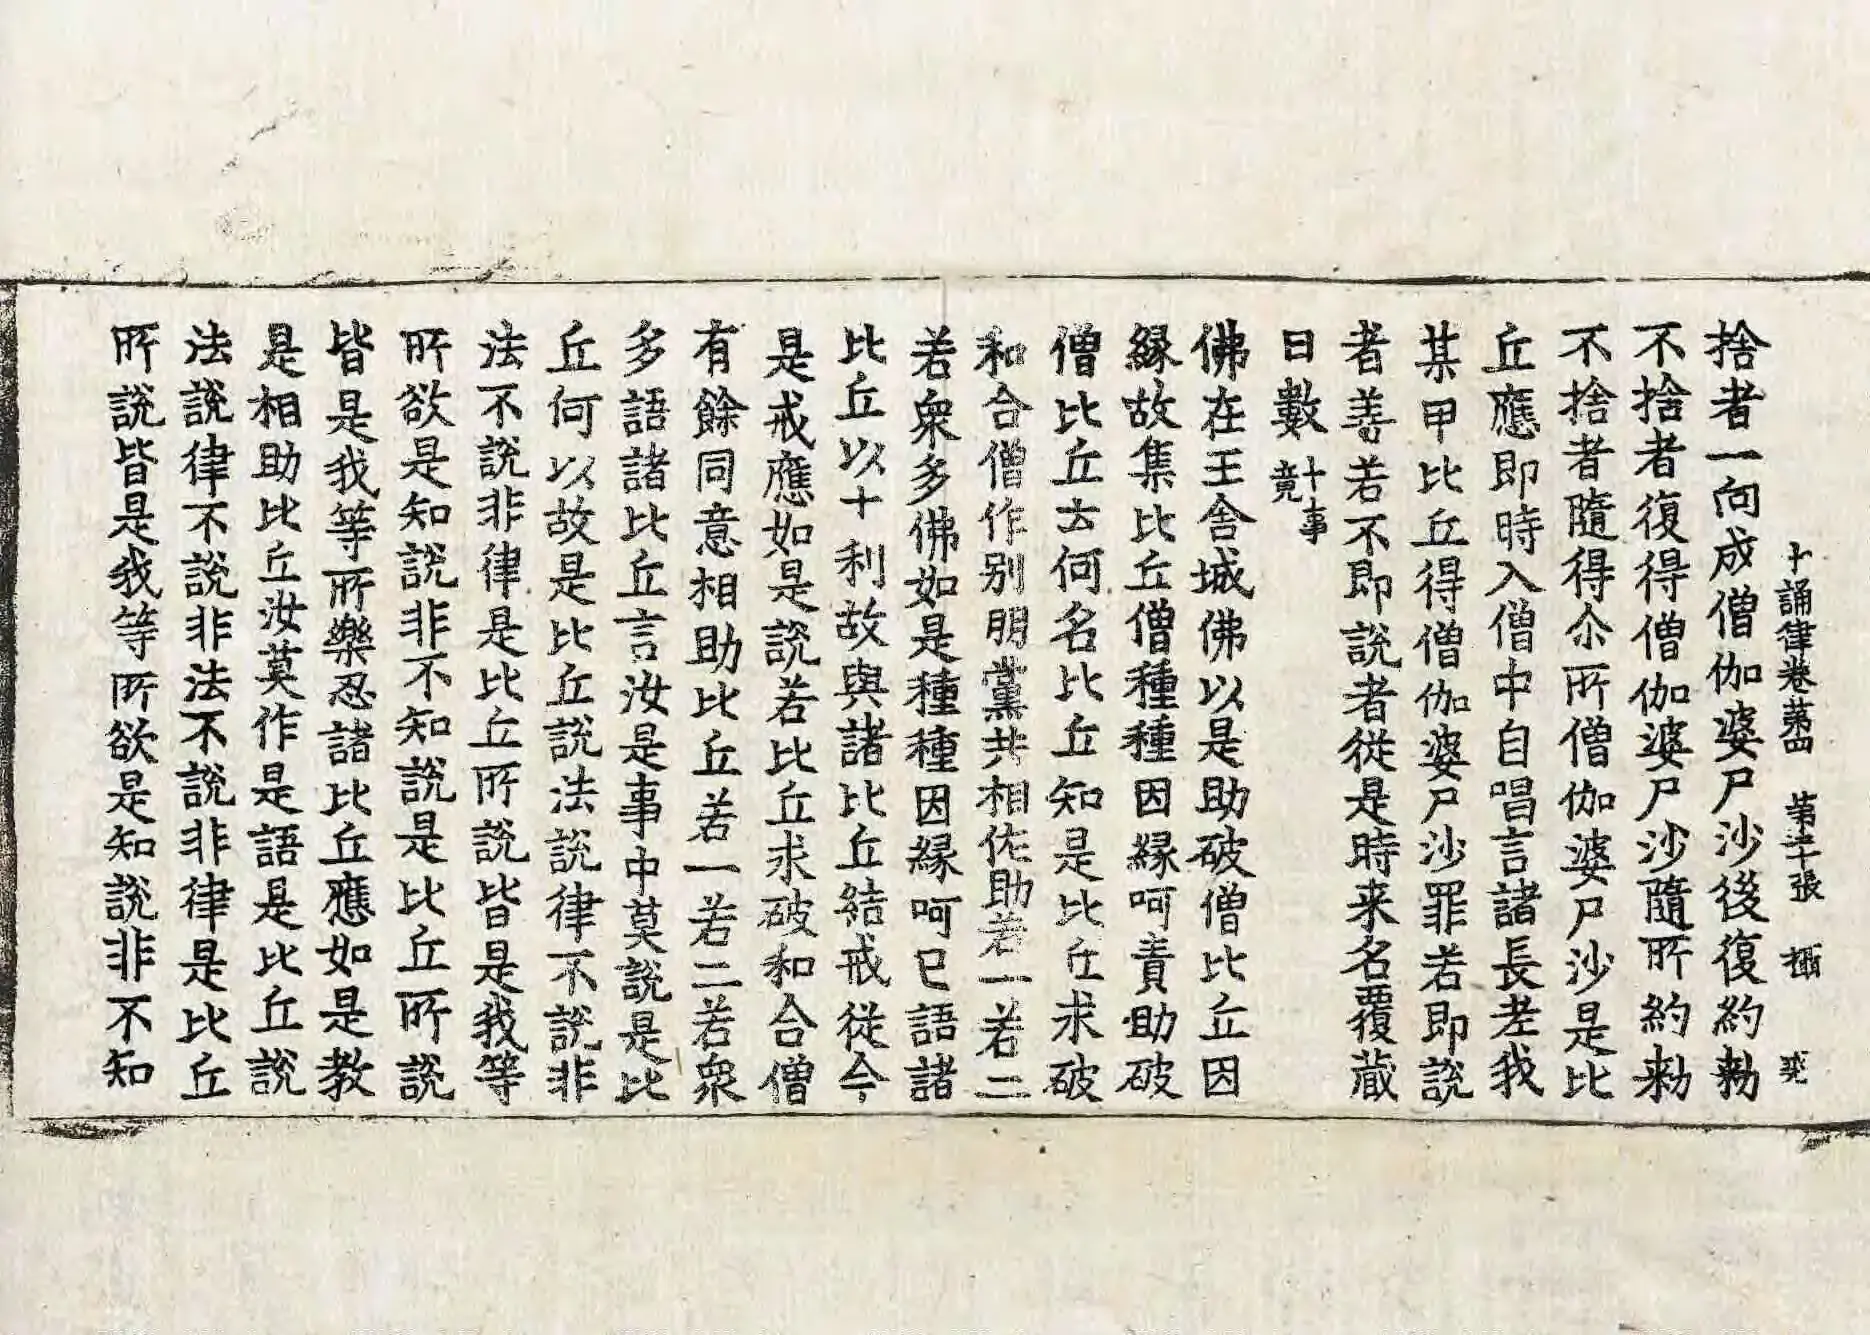 十誦律卷第四 第三十張 攝 奕
捨者一向成僧伽婆尸沙後復約勑
不捨者復得僧伽婆尸沙隨所約勑
不捨者隨得尒所僧伽婆尸沙是比
丘應即時入僧中自唱言諸長老我
某甲比丘得僧伽婆尸沙罪若即說
者善若不即說者從是時来名覆藏
日數十事竟
佛在王舍城佛以是助破僧比丘因
緣故集比丘僧種種因緣呵責助破
僧比丘云何名比丘知是比丘求破
和合僧作別朋黨共相佐助若一若二
若衆多佛如是種種因緣呵已語諸
比丘以十利故與諸比丘結戒從今
是戒應如是說若比丘求破和合僧
有餘同意相助比丘若一若二若衆
多語諸比丘言汝是事中莫說是比
丘何以故是比丘說法說律不說非
法不說非律是比丘所說皆是我等
所欲是知說非不知說是比丘所說
皆是我等所樂忍諸比丘應如是教
是相助比丘汝莫作是語是比丘說
法說律不說非法不說非律是比丘
所說皆是我等所欲是知說非不知